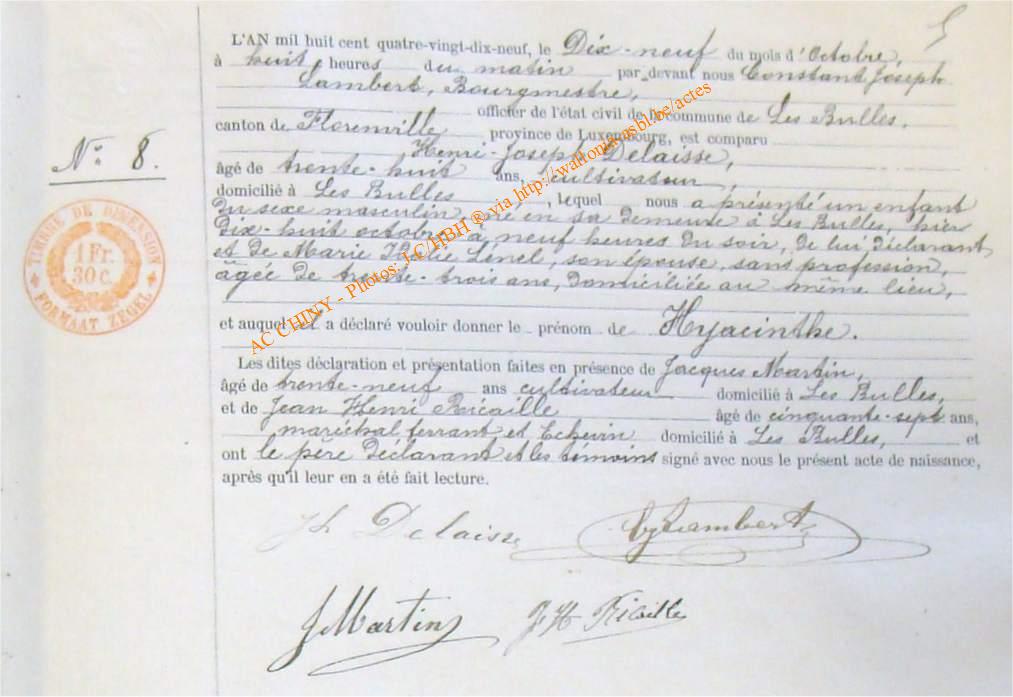 5
L'AN mil huit cent quatre-vingt-dix-neuf, le Dix-neuf du mois d'Octobre,
à huit heures du matin par devant nous Constant Joseph
Lambert, Bourgmestre,
officier de l'état civil de la commune de Les Bulles,
canton de Florenville province de Luxembourg, est comparu
Henri-Joseph Delaisse,
âgé de trente-huit ans, cultivateur,
domicilié à Les Bulles, lequel nous a présenté un enfant
du sexe masculin, né en sa demeure à Les Bulles, hier
dix-huit octobre à neuf heures du soir, de lui déclarant
et de Marie Lénel, son épouse, sans profession,
âgée de trente-trois ans, domiciliée au même lieu,
et auquel il a déclaré vouloir donner le prénom de Hyacinthe.
Les dites déclaration et présentation faites en présence de Jacques Martin,
âgé de trente-neuf ans cultivateur domicilié à Les Bulles,
et de Jean Henri Ricaille âgé de cinquante-sept ans,
maréchal ferrant et Echevin domicilié à Les Bulles, et
ont le père déclarant et les témoins signé avec nous le présent acte de naissance,
après qu'il leur en a été fait lecture.
N° 8.
TIMBRE DE DIMENSION
1 Fr.
30 c.
FORMAAT ZEGEL
AC CHINY - Photos: J-C/HBH ® via http://wallonia-asbl.be/actes
Delaisse
CJLambert
JMartin
J.H Ricaille